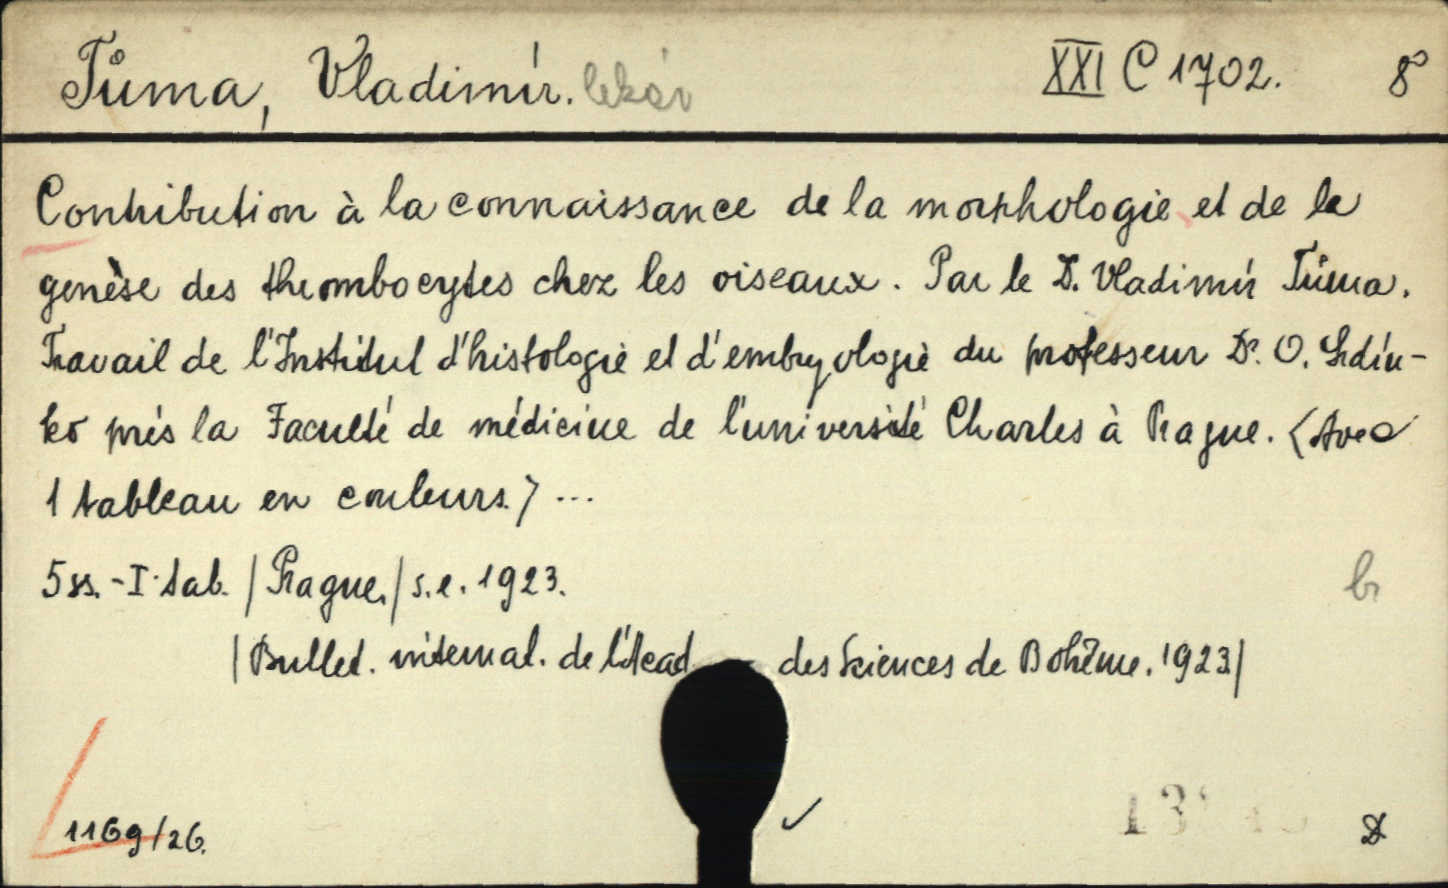 Tůma, Vladimír. lékař XXI C 1702. 8°
Contribution à la connaissance de la morphologie et de la
genèse des thrombocytes chez les oiseaux. Par le D. Vladimír Tůma.
Travail de l'Institut d'histologie et d'embryologie du professeur Dr. O. Srdín-
ko prés la Faculté de médicine de l'université Charles à Prague. (Avec
1 tableau en couleurs.) ...
5 ss. - I tab. | Prague, | s. e. 1923. br
| Bullet. internat. de l'Acad des Sciences de Bohême. 1923 |
1169/26.